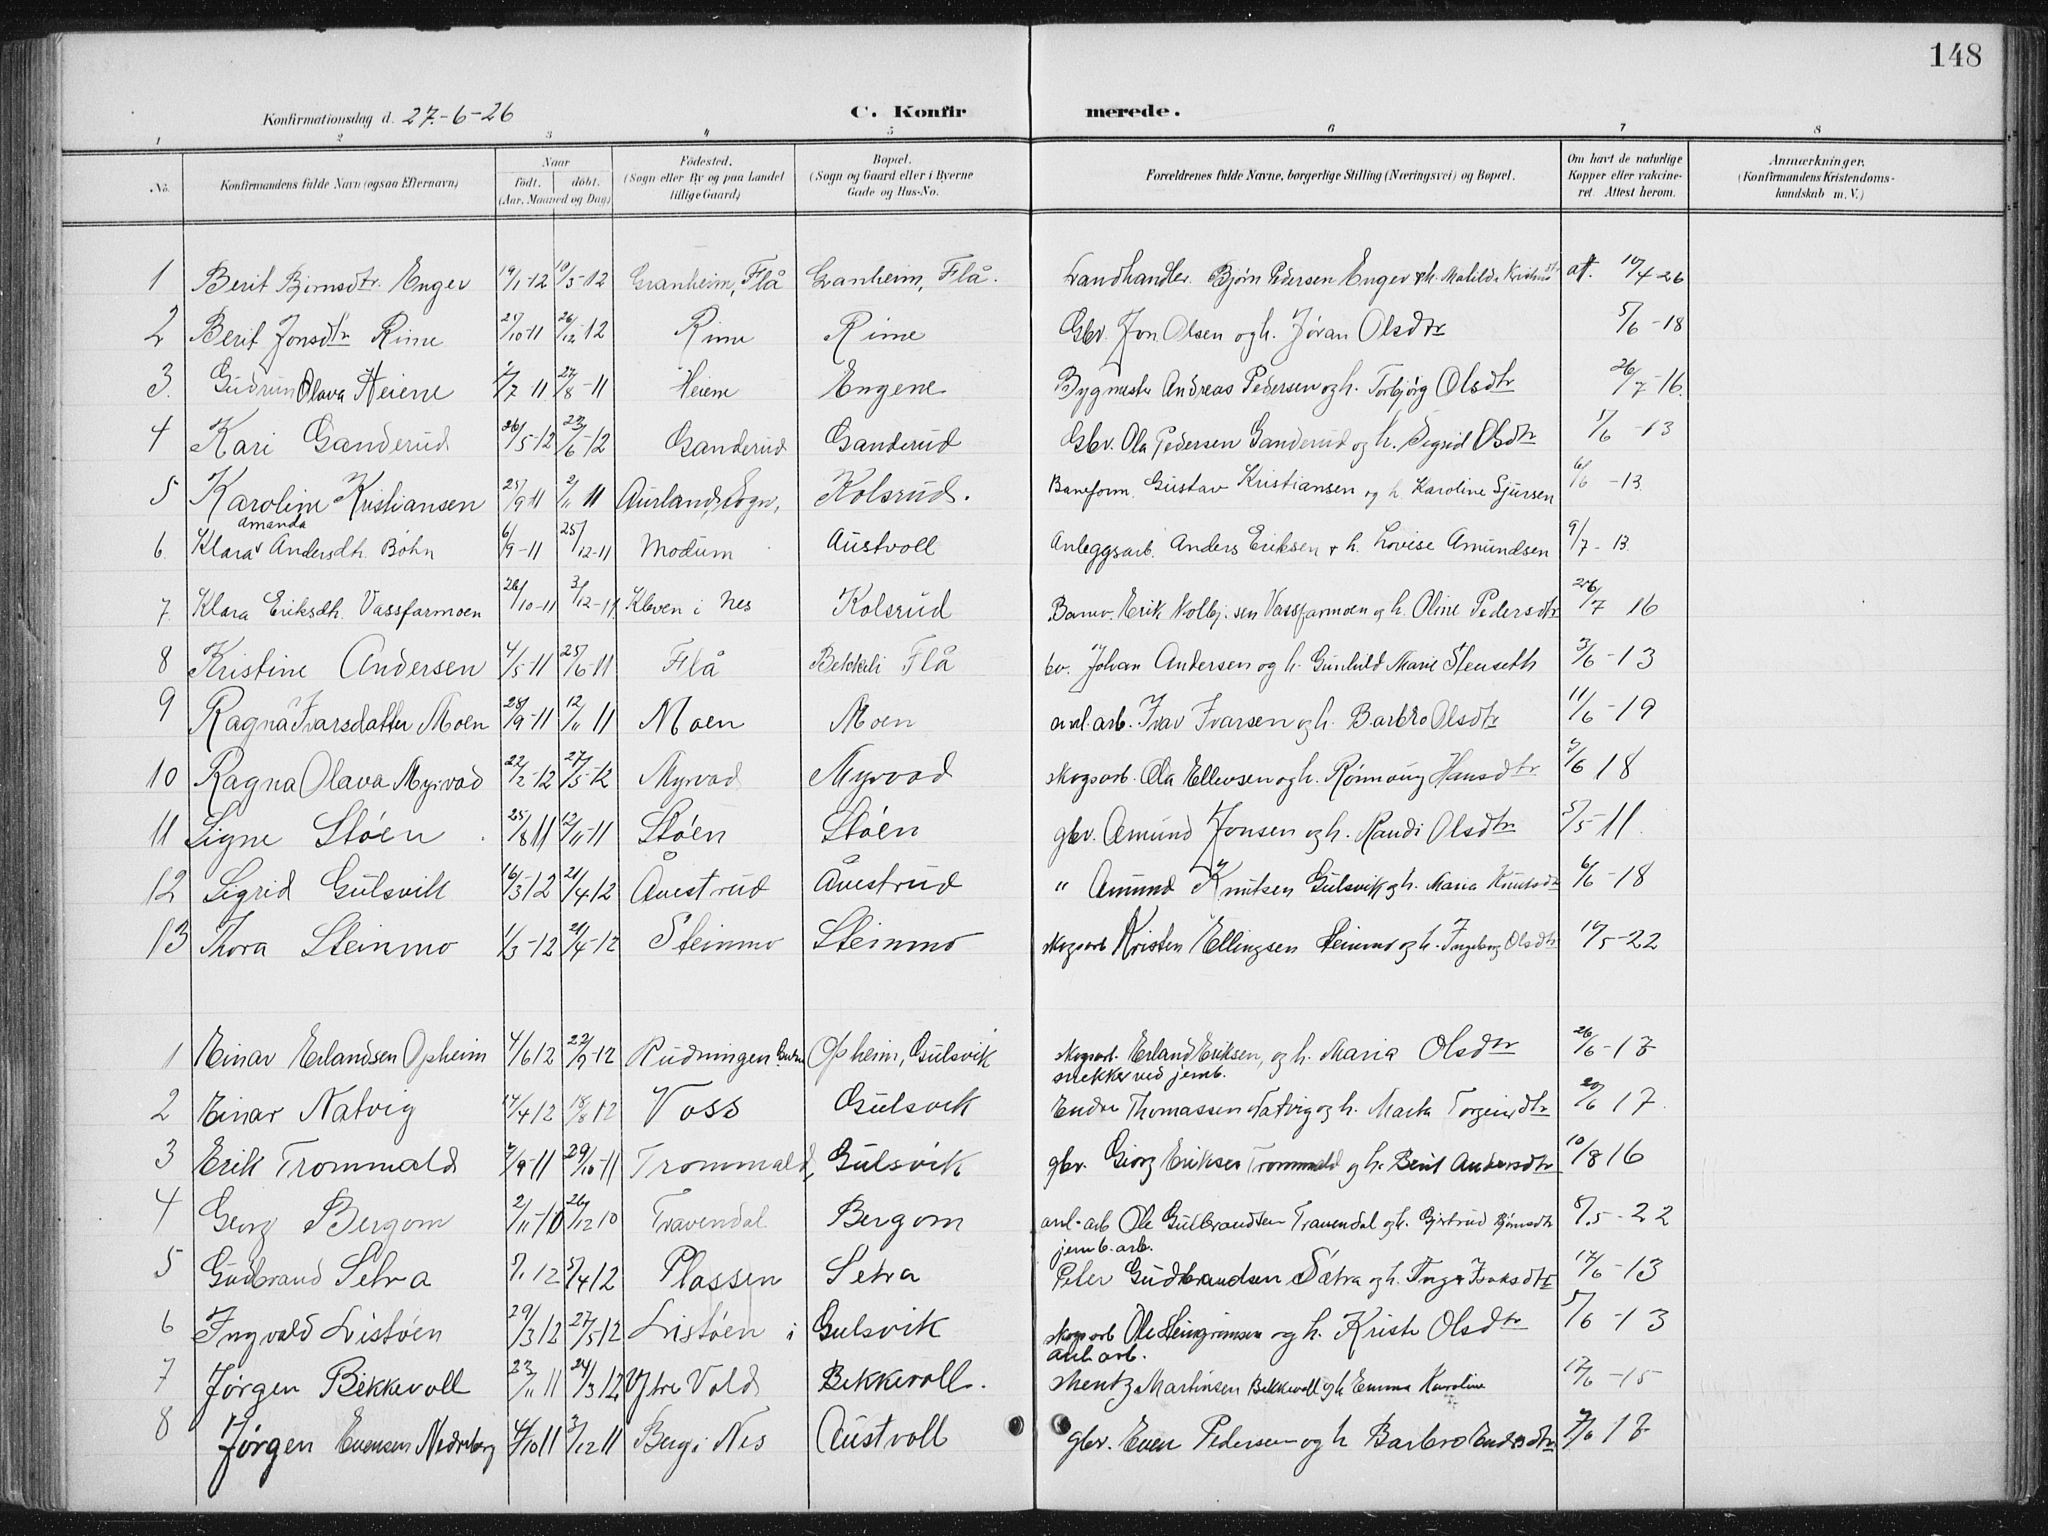 148
Konfirmationsdag d. 27.-6-26 C. Konfirmerede.
1 2 3 4 5 6 7 8
No. Konfirmandens fulde Navn (ogsaa Efternavn) Naar født. døbt. (Aar, Maaned og Dag) Fødested. (Sogn eller By og paa Landet tillige Gaard) Bopæl. (Sogn og Gaard eller i Byerne Gade og Hus-No. Forældrenes fulde Navne, borgerlige Stilling (Næringsvei) og Bopæl. Om havt de naturlige Kopper eller vakcineret. Attest herom. Anmærkninger. (Konfirmandens Kristendomskundskab m. V.)
1 Berit Bjørnsdtr. Enger 19/1-12 10/5-12 Granheim, Flå Granheim, Flå. Landhandler Bjørn Pedersen Enger & h. Matilde at. 10/4-26
2 Berit Jonsdtr Rime 25/10-11 26/12-12 Rime Rime Gbr. Jon Olsen og h. Jøran Olsdtr 5/6-18
3. Gudrun Olava Heiene 7-11 27/8-11 Heiene Engene Bygmester Andreas Pedersen og h. Torbjørg Olsdtr 26/7-16.
4 Kari Ganderud 26/5-12 23/6-12 Ganderud Ganderud Gbr. Ola Pedersen Ganderud og h. Sigrid Olsdtr 5/6-13
5 Karoline Kristiansen 25/9-11 2/11 11 Aurland, Sogn, Kolsrud. Baneform. Gustav Kristiansen og h. Karoline Sjursen 6/6-13
6. Klara Amanda Andersdtr. Böhn 6/9-11 25/12-11 Modum Austvoll Anleggsarb. Anders Eriksen & h. Lovise Amundsen 9/7-13
7. Klara Eriksdtr. Vassfarmoen 26/10-11 3/12-11 Kleven i Nes Kolsrud Banev. Erik Kolbj.sen Vassfarmoen og h. Oline Pedersdtr 26/7 16
8 Kristine Andersen 4/5-11 25/6-11 Flå Bekkeli Flå bv. Johan Andersen og h. Gunhild Marie Stenseth 3/6-13
9 Ragna Ivarsdatter Moen 28/9-11 12/11 11 Moen Moen anl.arb. Ivar Ivarsen og h. Barbro Olsdtr 11/6-19
10 Ragna Olava Myrvad 22/2-12 27/5-12 Myrvad Myrvad skogsarb. Ola Ellevsen og h. Rønnaug Hansdtr 5/6 18
11 Signe Støen 25/8 11 12/11-11 Støen Støen gbr. Amund Jonsen og h. Randi Olsdtr 5/5-11.
12 Sigrid Gulsvik 16/3-12 21/4-12 Åvestrud Åvestrud " Amund Knutsen Gulsvik og h. Maria Knutsdtr 6/6-18
13 Thora Steinmo 1/3-12 21/4-12 Steinmo Steinmo skogsarb Kristen Ellingsen Steinmo og h. Ingeborg Olsdtr 10/5-22
1 Einar Erlandsen Opheim 4/6 12 22/9-12 Rudningen Opheim, Gulsvik skogsarb. Erland Eriksen, og h. Maria Olsdtr 26/6-18
2 Einar Natvig 17/4 12 18/8 12 Voss Gulsvik snekker ved jernb. Endre Thomassen Natvig og h. Marta Torgeirsdtr 20/6 17.
3 Erik Trommald 7/9-11 29/10-11 Trommald, Gulsvik gbr. Georg Eriksen Trommald og h. Berit Andersdtr 10/8 16
4 Georg Bergom 2/11-10 26/12 10 Travendal Bergom anl.arb Ole Gulbrandsen Travendal og h. Gjertrud Bjørnsdtr 8/5-22
5 Gudbrand Setra 5/1 12 5/4 12 Plassen Setra jernb.arb. Peter Gudbrandsen Sætra og h. Inga Isaksdtr 17/6-13
6 Ingvald Listøen 29/3 12 27/5 12 Listøen i Gulsvik skogsarb Ole Steingrimsen og h. Kristi Olsdtr 5/6-13
7 Jørgen Bekkevoll 23/11 11 24/3 12 Ytre Vold Bekkevoll. anl.arb. Mentz Martinsen Bekkevoll og h Emma Karoline 17/6-15
8 Jørgen Evensen Nedreberg 4/10 11 3/12 11 Berg i Nes Austvoll gbr. Even Pedersen og h Barbro Endresdtr 7/6 18